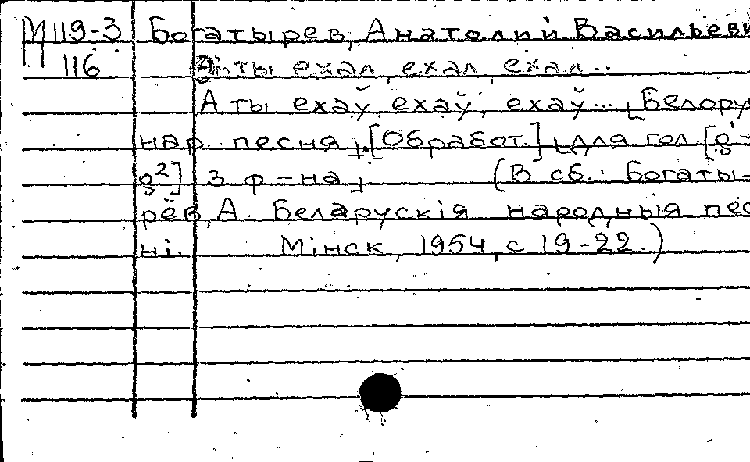 М 119-3 Богатырев, Анатолий Васильеви
116 А ты ехал, ехал, ехал...
А ты ехаў, ехаў, ехаў... [Белору
нар. песня]. [Обработ.] для гол [g¹-
g²] з ф-на] (В сб.: Богаты-
рёв, А. Беларускiя народныя пес
нi. Мiнск, 1954, с 19-22.)